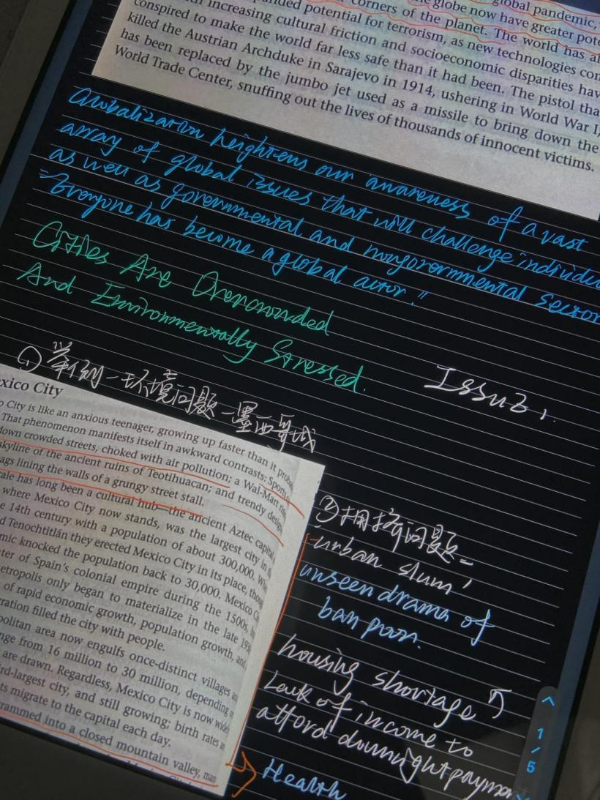 global pandemic,
the globe now have greater pote
corners of the planet. The world has al
nded potential for terrorism, as new technologies con
increasing cultural friction and socioeconomic disparities hav
conspired to make the world far less safe than it had been. The pistol tha
killed the Austrian Archduke in Sarajevo in 1914, ushering in World War I,
has been replaced by the jumbo jet used as a missile to bring down the
World Trade Center, snuffing out the lives of thousands of innocent victims.
Globalization heightens our awareness of a vast
array of global issues that will challenge individu
as well as governmental and nongovernmental sector
"Everyone has become a global actor."
Cities Are Overcrowded
And Environmentally Stressed.
Issue 1
① 举例一环境问题—墨西哥城
xico City
o City is like an anxious teenager, growing up faster than it
That phenomenon manifests itself in awkward contrasts: Sports
down crowded streets, choked with air pollution; a Wal-Mart
kyline of the ancient ruins of Teotihuacan; and trendy
ags lining the walls of a grungy street stall.
ale has long been a cultural hub—the ancient Aztec capital
where Mexico City now stands, was the largest city in
e 14th century with a population of about 300,000.
d Tenochtitlán they erected Mexico City in its place,
emic knocked the population back to 30,000. Mexico
ter of Spain's colonial empire during the 1500s,
etropolis only began to materialize in the late
of rapid economic growth, population growth,
ration filled the city with people.
politan area now engulfs once-distinct villages
nge from 16 million to 30 million, depending
are drawn. Regardless, Mexico City is now
rd-largest city, and still growing; birth rates
ts migrate to the capital each day.
rammed into a closed mountain valley,
② 拥挤问题—
urban slum,
unseen drama of
ban poor.
housing shortage
Lack of income to
afford downright paymen
Health
1/5